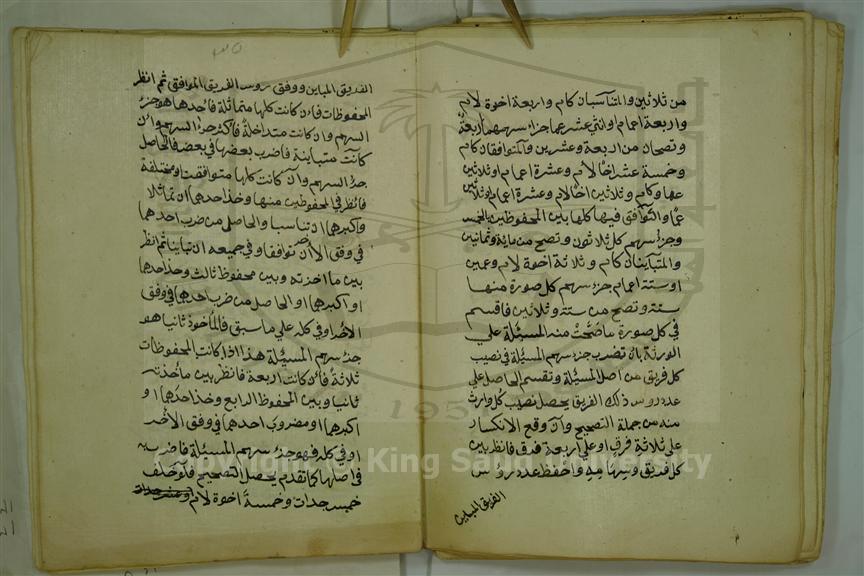 من ثلاثين والمتناسبان كام واربعة اخوة لام
واربعة اعمام اواثني عشر عما جزء سهمهما اربعة
وتصحان من اربعة وعشرين والمتوافقان كام
وخمسة عشر اخا لام وعشرة اعمام اوثلاثين
عما وكام وثلاثين اخا لام وعشرة اعمام اوثلاثين
عما والتوافق فيها كلها بين المحفوظين بالخمس
وجزء سهم كل ثلاثون وتصح من ماية وثمانين
والمتباينان كام وثلاثة اخوة لام وعمين
اوستة اعمام جزء سهم كل صورة منها
ستة وتصح من ستة وثلاثين فاقسم
في كل صورة ماصحت منه المسئلة علي
الورثة بان تضرب جزء سهم المسئلة في نصيب
كل فريق من اصل المسئلة وتقسم الحاصل علي
عدد روس ذلك الفريق يحصل نصيب كل وارث
منه من جملة التصحيح وان وقع الانكسار
على ثلاثة فرق اوعلي اربعة فرق فانظر بين
كل فريق وسهامه واحفظ عدد روس
الفريق المباين
٣٥
الفريق المباين ووفق روس الفريق الموافق ثم انظر
المحفوظات فان كانت كلها متماثلة فاحدها هو جزء
السهم وان كانت متداخلة فاكثر جزء السهم وان
كانت متباينة فاضرب بعضها في بعض فالحاصل
جزء السهم وان كانت كلها متوافقت ومختلفة
فانظر في المحفوظين منها وخذ احدهما ان تماثلا
واكبرهما ان تناسبا والحاصل من ضرب احدهما
في وفق الاخر ان توافقا وفي جميعه ان تباينا ثم انظر
بين ما اخذته وبين محفوظ ثالث وخذ احدهما
او اكبرهما او الحاصل من ضرب احدهما في وفق
الاخر او في كله علي ماسبق فالماخوذ ثانيا هو
جزء سهم المسئلة هذا اذا كانت المحفوظات
ثلاثة فان كانت اربعة فانظر بين ما اخذته
ثانيا وبين المحفوظ الرابع وخذ احدهما او
اكبرهما او مضروب احدهما في وفق الاخر
او في كله فهو جزء سهم المسئلة فاضربه
في اصلها كما تقدم يحصل التصحيح فلو خلف
خمس جدات وخمسة اخوة لام
Copyright © King Saud University
195